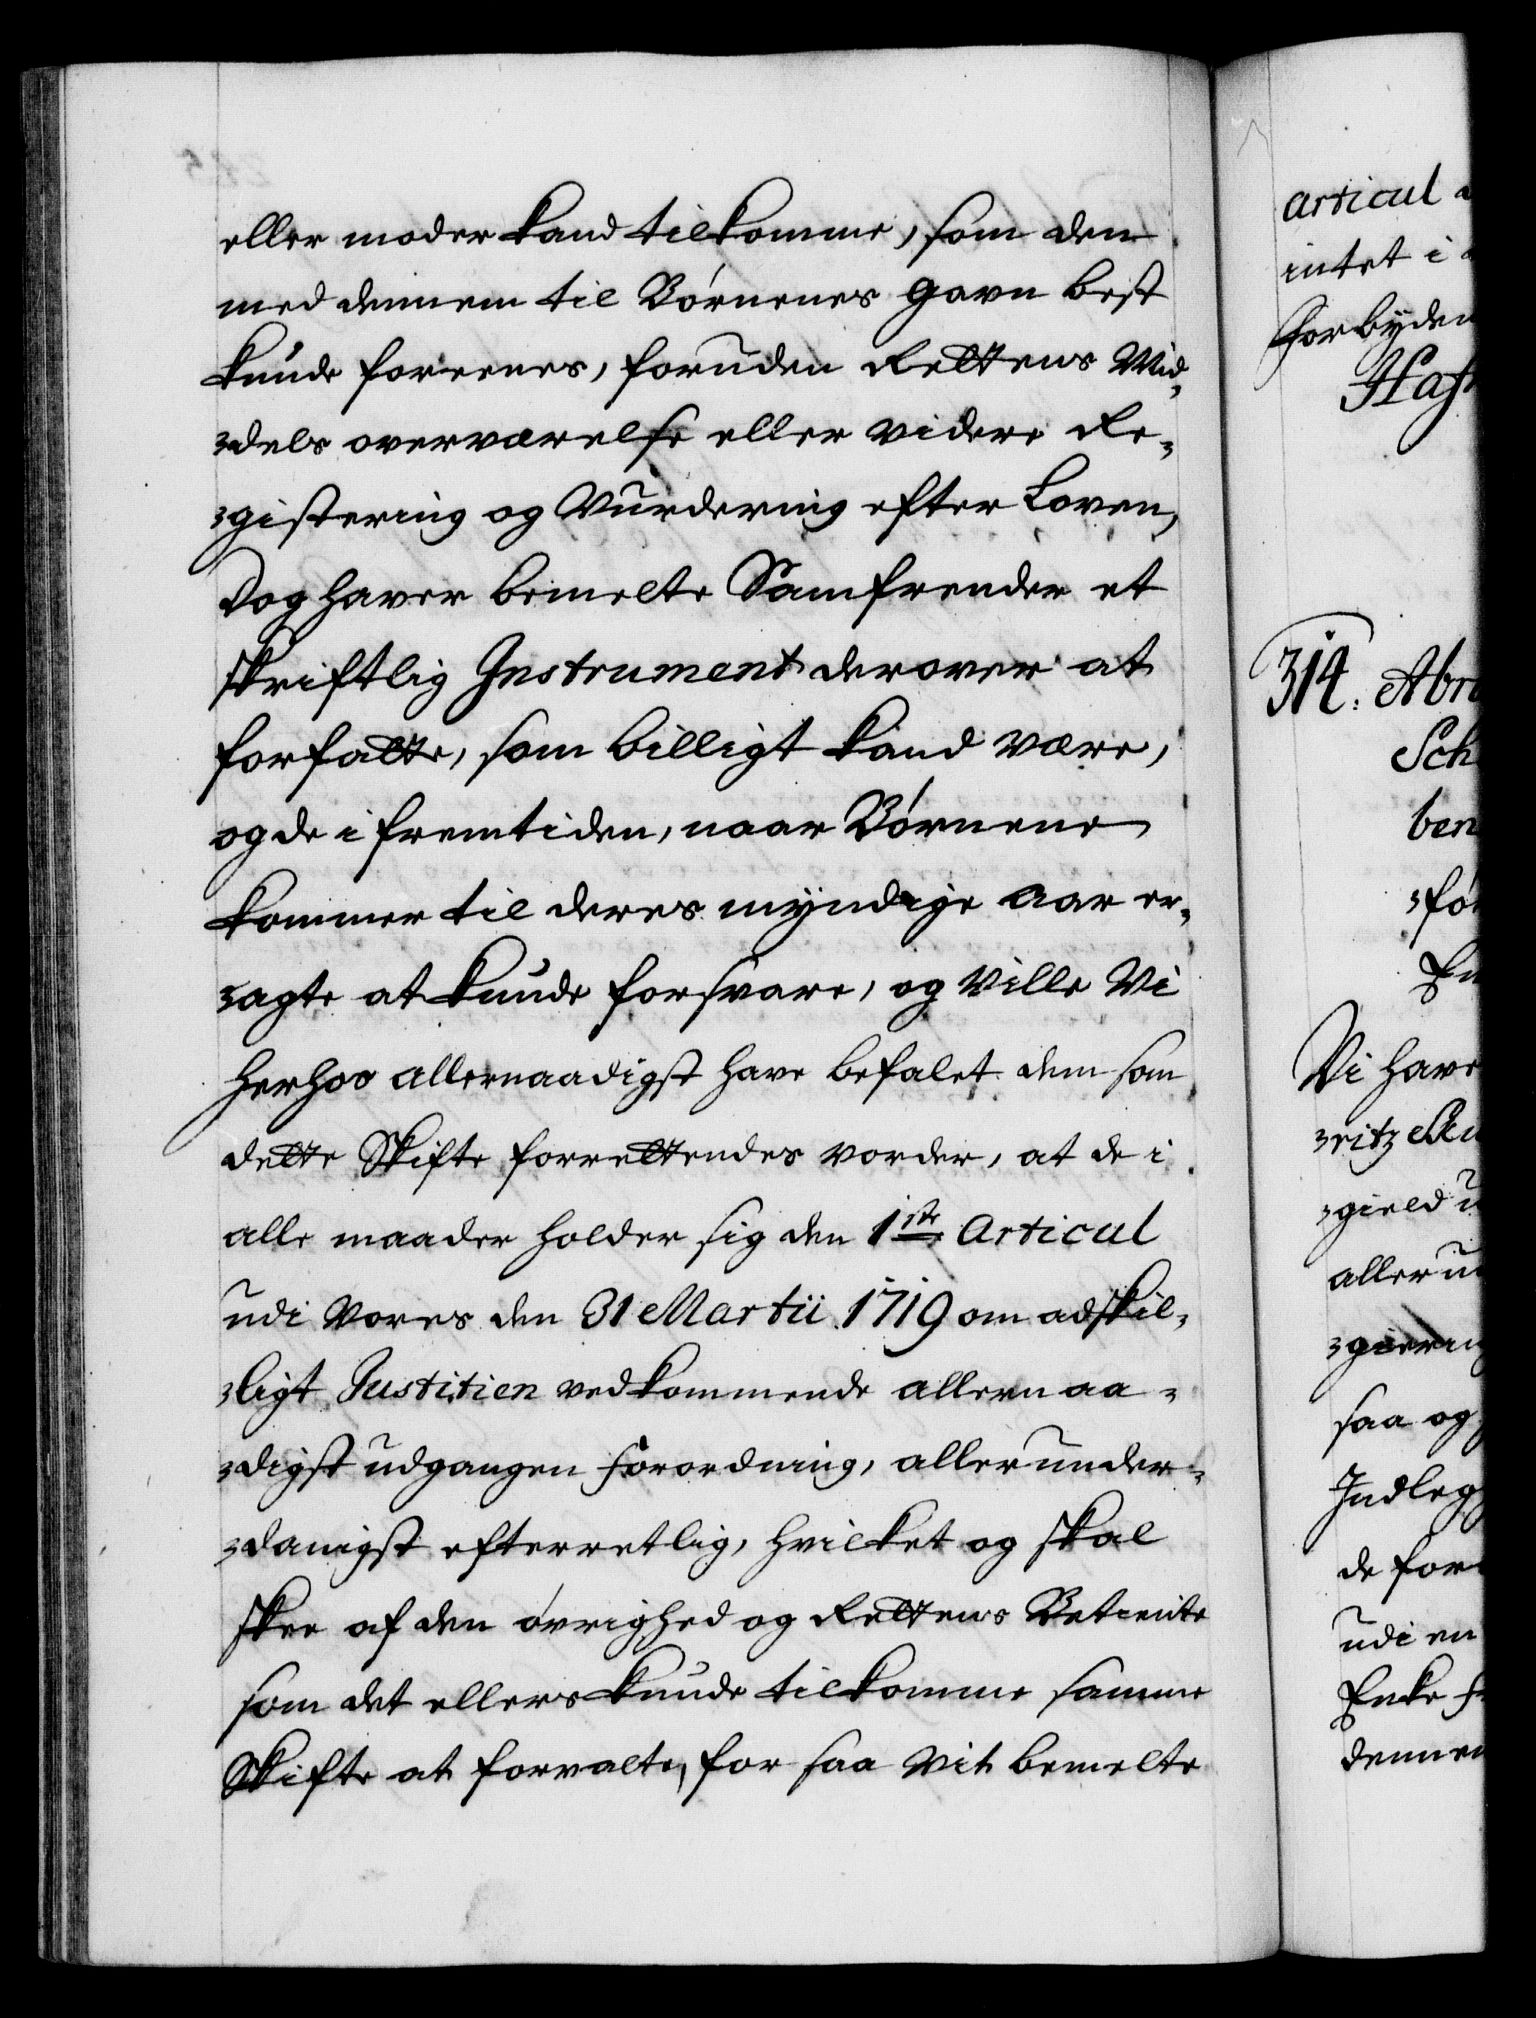 eller moder kand tilkomme, som den
med dennem til Børnenes gavn best
kunde foreenes, foruden Rettens Mid-
-dels overværelse eller videre Re-
-gistering og Vurdering efter Loven,
dog haver bemelte Samfrender et
skriftlig Instrument derover at
forfatte, som billigt kand være,
og de i fremtiden, naar Børnene
kommer til deres myndige aar er-
-agte at kunde forsvare, og Ville Vi
herhos allernaadigst have befalet dem som
dette Skifte forrettendes vorder, at de i
alle maader holder sig den 1ste Articul
udi Vores den 31 Martii 1719 om adskil-
-ligt Justitien vedkommende allernaa-
-digst udgangen Forordning, allerunder-
-danigst efterretlig, hvilket og skal
skee af den øvrighed og Rettens Betiente
som det ellers kunde tilkomme samme
Skifte at forvalte, for saa vit bemelte
articul
intet i
forbyden
314.
Vi have
-gield
saa og
Indleg
de for
udi en
Enke